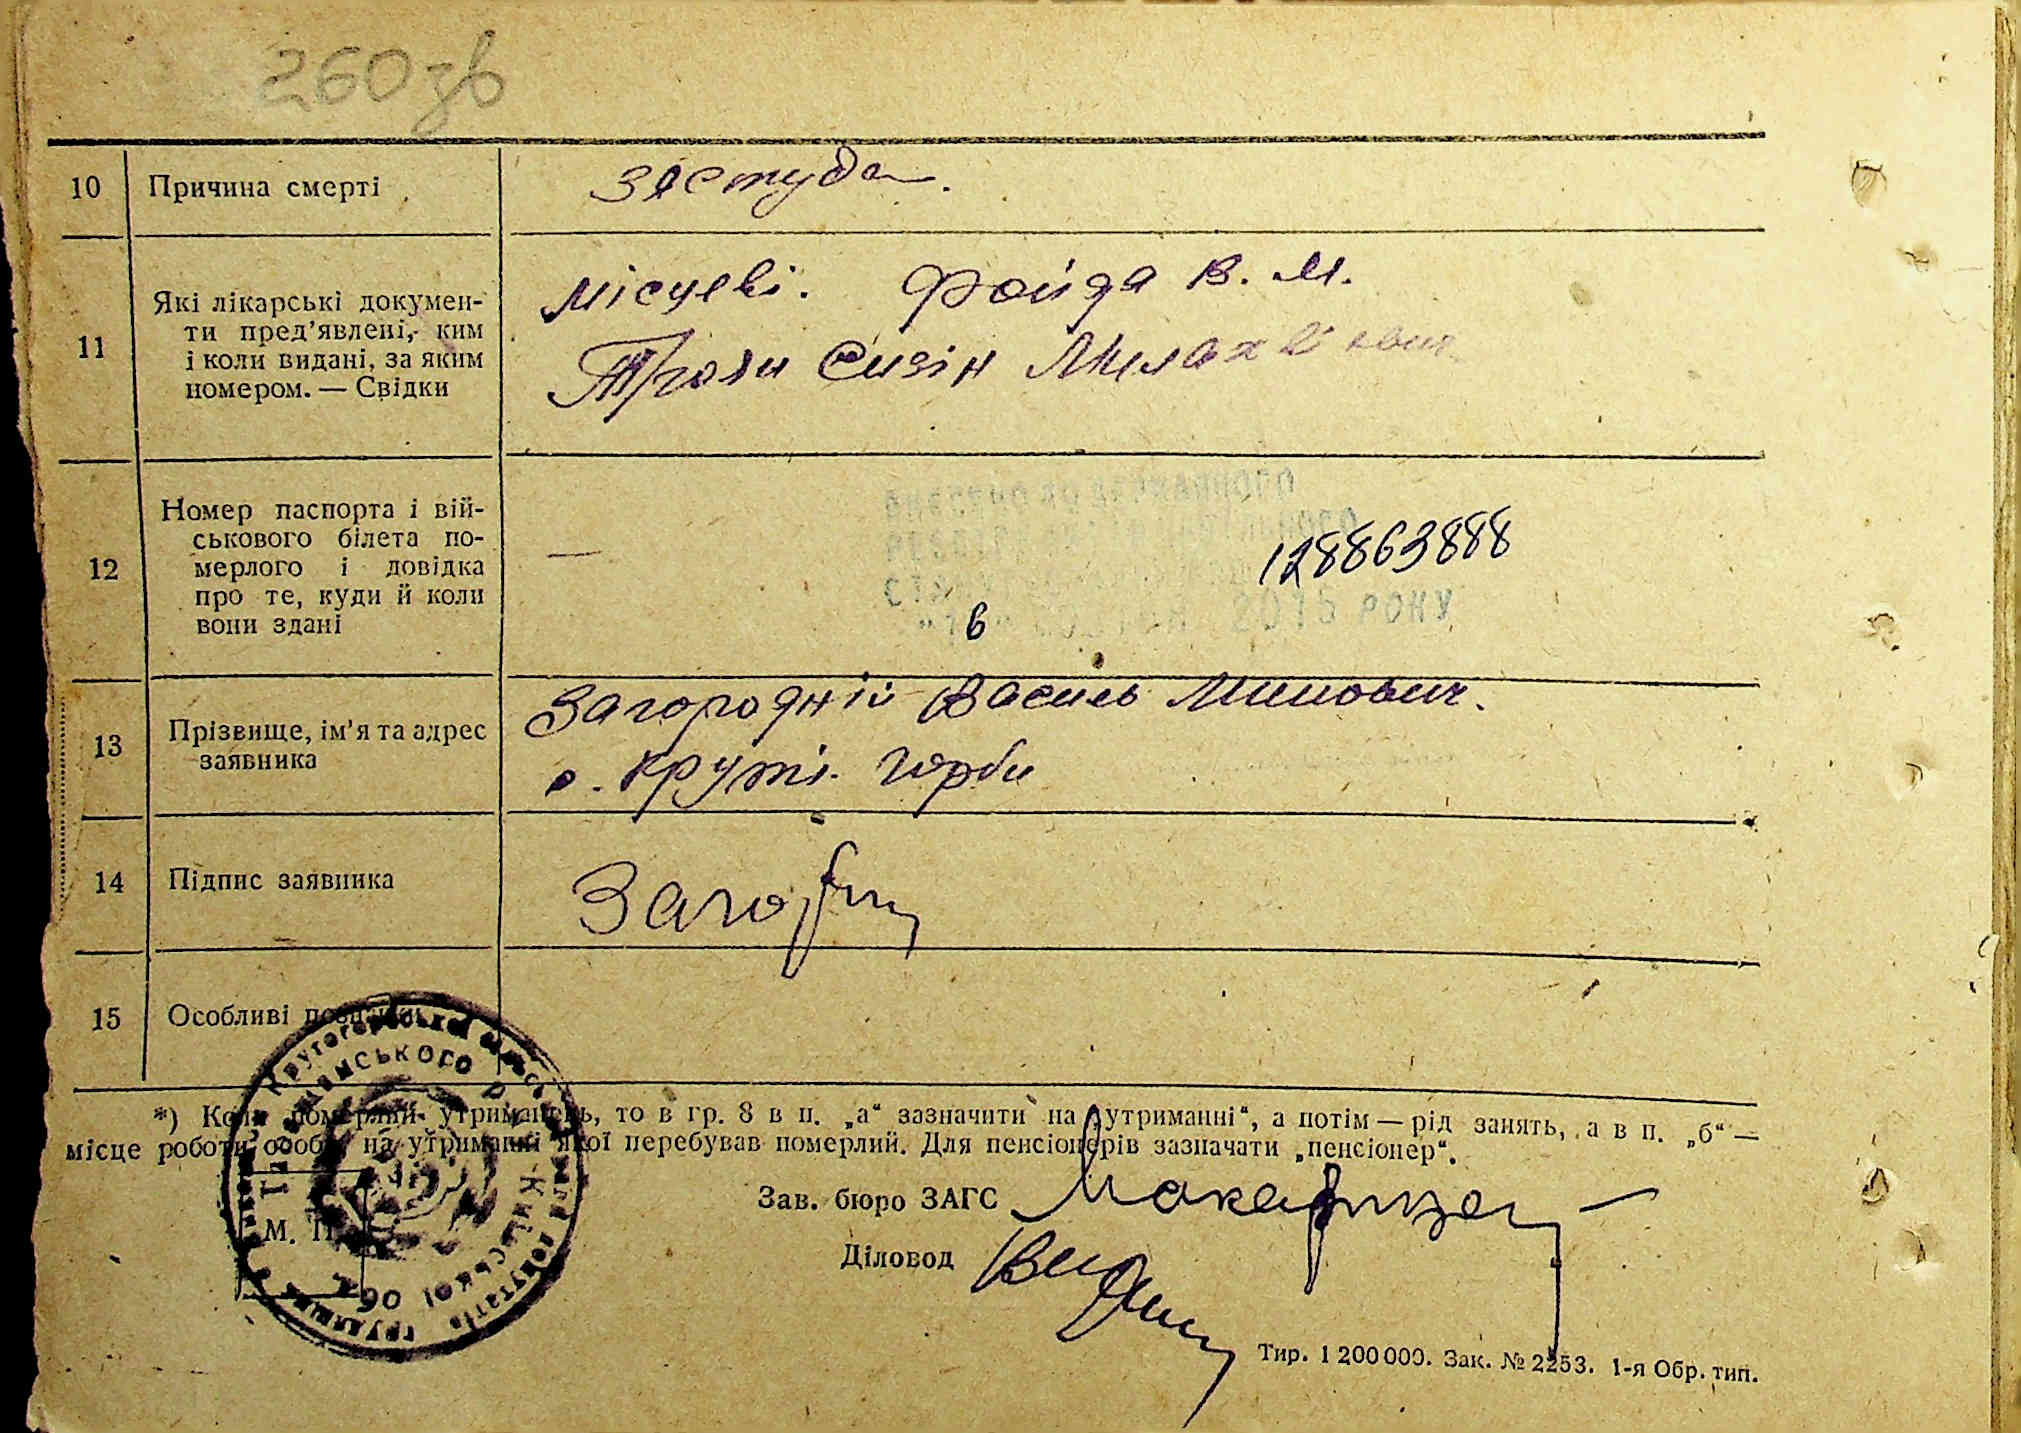 260 зв
10 Причина смерті застуда.
11 Які лікарські докумен-
ти пред’явлені, ким
і коли видані, за яким
номером. — Свідки
місцеві. Фойда В. М.
12 Номер паспорта і вій-
ськового білета по-
мерлого і довідка
про те, куди й коли
вони здані
—
ВНЕСЕНО ДО ДЕРЖАВНОГО
128863888
6 2015 РОКУ
13 Прізвище, ім’я та адрес
заявника
Загородній Василь Минович.
с. Круті Горби
14 Підпис заявника
15 Особливі
*) Коли померлий утриманець, то в гр. 8 в п. „а“ зазначити на „утриманні“, а потім — рід занять, а в п. „б“ —
місце роботи особи на утриманні якої перебував померлий. Для пенсіонерів зазначати „пенсіонер“.
Зав. бюро ЗАГС
М. П.
Діловод
Кругогорбської
Київської обл.
депутатів трудящих
Тир. 1 200 000. Зак. № 2253. 1-я Обр. тип.